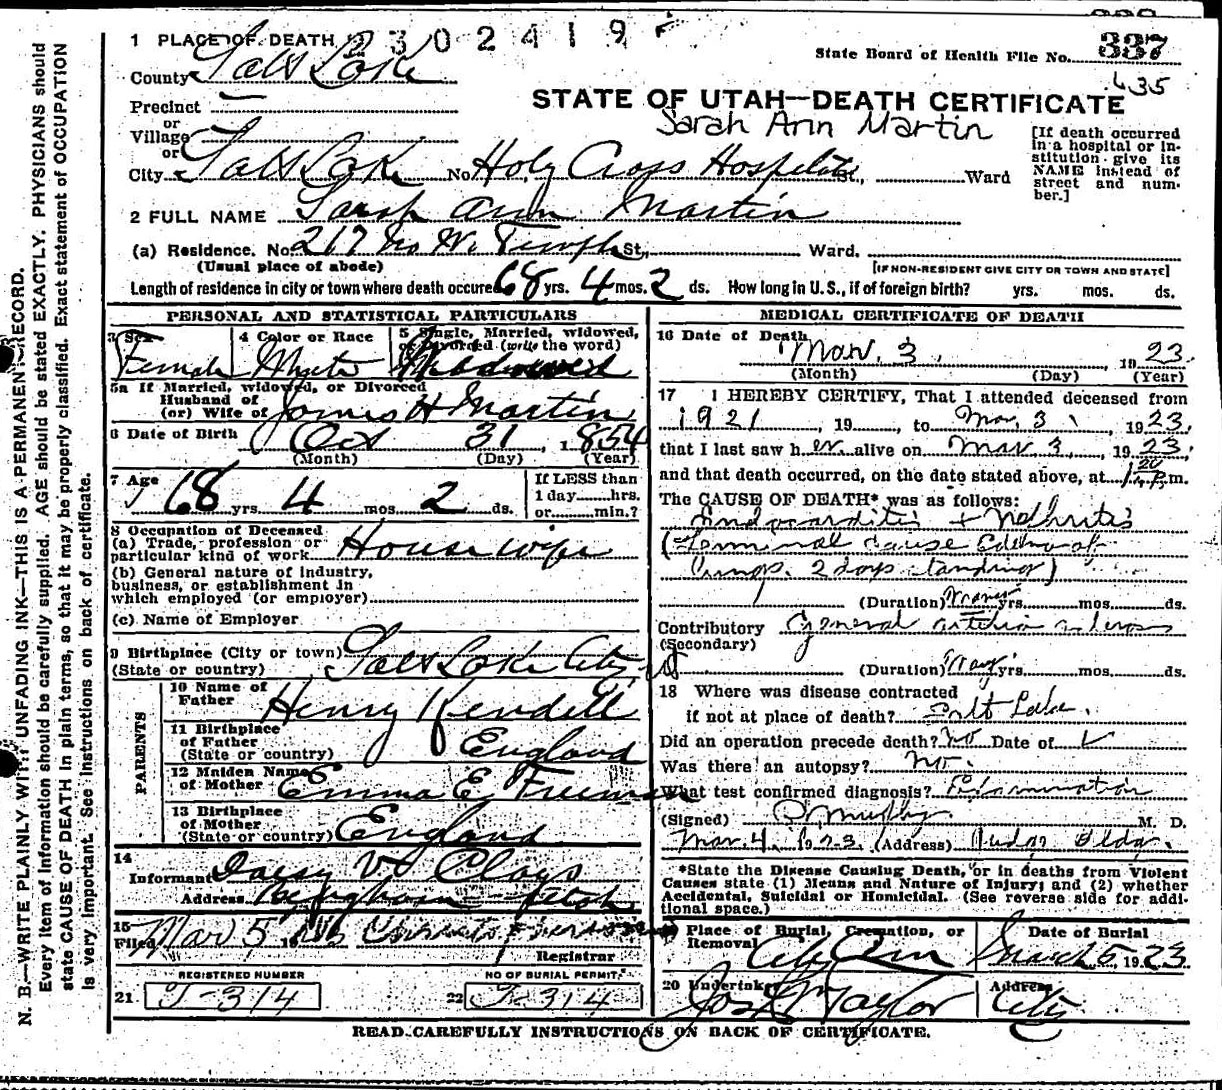 2302419
1 PLACE OF DEATH
State Board of Health File No. 337
County Salt Lake
435
Precinct
STATE OF UTAH—DEATH CERTIFICATE
or
Village
Sarah Ann Martin
or
City Salt Lake No. Holy Cross Hospital St., Ward
[If death occurred in a hospital or institution give its NAME instead of street and number.]
2 FULL NAME Sarah Ann Martin
(a) Residence. No. 217 No W. Temple St., Ward.
(Usual place of abode) [IF NON-RESIDENT GIVE CITY OR TOWN AND STATE]
Length of residence in city or town where death occured 68 yrs. 4 mos. 2 ds. How long in U.S., if of foreign birth? yrs. mos. ds.
PERSONAL AND STATISTICAL PARTICULARS
3 Sex
Female
4 Color or Race
White
5 Single, Married, widowed,
or Divorced (write the word)
Widowed
5a If Married, widowed, or Divorced
Husband of
(or) Wife of James H Martin
6 Date of Birth Oct 31, 1854
(Month) (Day) (Year)
7 Age 68 yrs. 4 mos. 2 ds.
If LESS than
1 day hrs.
or min.?
8 Occupation of Deceased
(a) Trade, profession or
particular kind of work House wife
(b) General nature of industry,
business, or establishment in
which employed (or employer)
(c) Name of Employer
9 Birthplace (City or town) Salt Lake City, Ut
(State or country)
PARENTS
10 Name of
Father Henry Kendell
11 Birthplace
of Father
(State or country) England
12 Maiden Name
of Mother Emma E. Freeman
13 Birthplace
of Mother
(State or country) England
14
Informant Daisy V. Clays
Address Bingham Utah
15
Filed Mar 5 19
Registrar
REGISTERED NUMBER
21 T-314
NO OF BURIAL PERMIT
22 T-314
MEDICAL CERTIFICATE OF DEATH
16 Date of Death
Mar. 3, 1923.
(Month) (Day) (Year)
17 I HEREBY CERTIFY, That I attended deceased from
1921, 19, to Mar, 3, 1923,
that I last saw her alive on Mar 3, 1923,
and that death occurred, on the date stated above, at 1 20 P.m.
The CAUSE OF DEATH* was as follows:
Endocarditis + Nephritis
(Terminal cause Edema of
Lungs. 2 days standing)
(Duration) Many yrs. mos. ds.
Contributory General arterio sclerosis
(Secondary)
(Duration) Many yrs. mos. ds.
18 Where was disease contracted
if not at place of death? Salt Lake.
Did an operation precede death? No Date of
Was there an autopsy? No.
What test confirmed diagnosis? Examination
(Signed) Murphy M. D.
Mar. 4, 1923. (Address) Judge Bldg.
*State the Disease Causing Death, or in deaths from Violent
Causes state (1) Means and Nature of Injury; and (2) whether
Accidental, Suicidal or Homicidal. (See reverse side for additional space.)
19 Place of Burial, Cremation, or
Removal
Date of Burial
March 5, 1923
20 Undertaker
Jos. Wm Taylor
Address
City
READ CAREFULLY INSTRUCTIONS ON BACK OF CERTIFICATE.
N. B.—WRITE PLAINLY WITH UNFADING INK—THIS IS A PERMANENT RECORD.
Every item of information should be carefully supplied. AGE should be stated EXACTLY. PHYSICIANS should
state CAUSE OF DEATH in plain terms, so that it may be properly classified. Exact statement of OCCUPATION
is very important. See instructions on back of certificate.